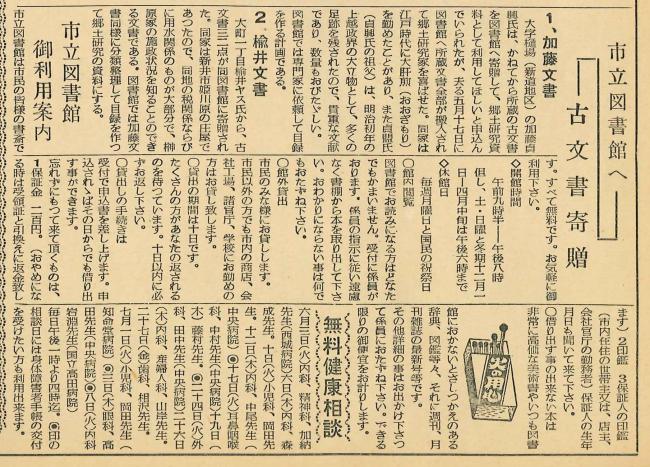 市立図書館へ
古文書寄贈
1、加藤文書
大学樋場（新道地区）の加藤貞
興氏は、かねてから所蔵の古文書
を図書館へ寄贈して、郷土研究資
料として利用してほしいと申込ん
でいられたが、去る五月十七日に
図書館へ所蔵文書全部が搬入され
て郷土研究家を喜ばせた。同家は
江戸時代に大肝煎
を勤めたことがあり、また貞
（貞興氏の祖父）は、明治初年の
上越政界の大立物として、多くの
足跡を残されたので、貴重な文献
であり、数量もおびたゞしい。
図書館では専門家に依頼して目録
を作る計画である。
2 楡井文書
大町一丁目楡井ヤス氏から、古
文書三二点が同図書館に寄贈され
た。同家は新井市姫川原の庄屋で
あつたので、同地の税関係ならび
に用水関係のものが大部分で、榊
原家の施政状況を知ることのでき
る文書である。図書館では加藤文
書同様に分類整理して目録を作つ
て郷土研究の資料にする。
市立図書館
御利用案内
市立図書館は市民の皆様の書斎で
す。すべて無料です。お気軽に御
利用下さい。
◇開館時間
午前九時半―午後八時
但し、土・日曜と冬期十二月一
日―四月中旬は午後六時まで
◇休館日
毎週月曜日と国民の祝祭日
〇館内閲覧
図書館でお読みになる方はどなた
でもかまいません。受付に係員が
おります。係員の指示に従い遠慮
なく書棚から本を取り出して下さ
い。おわかりにならない事は何で
もおたずね下さい。
〇館外貸出
市民のみな様にお貸しします。
市民以外の方でも市内の商店、会
社工場、諸官庁、学校にお勤めの
方はお貸し致します。
〇貸出の期間は十日です。
たくさんの方があなたの返される
のを待つています。十日以内に必
ずお返し下さい。
〇貸出しの手続きは
受付で申込書を差し上げます。申
込されゝばその日からでも借り出
す事ができます。
忘れずにもつて来て頂くものは、
1保証金 二百円。（おやめにな
る時は受領証と引換えに返金致し
ます）2印鑑 3保証人の印鑑
（市内在住の世帯主又は、店主、
会社官庁の勤務者）保証人の生年
月日も聞いて来て下さい。
〇借り出す事の出来ない本は
非常に高価な美術書やいつも図書
館におかないとさしつかえのある
辞典、図鑑等々、それに週刊、月
刊雑誌の最新号等です。
その他詳細の事はお出かけ下さつ
て係員におたずね下さい。できる
限りの御便宜をお計りします。
無料健康相談
六月三日（火）内科、精神科、加納
先生（西城病院）六日（木）内科、森
成先生。十日（火）小児科、岡田先
生。十二日（木）内科、中尾先生（
中央病院）◉十七日（火）耳鼻咽喉
科、中村先生（中央病院）十九日（
木）藤村先生。◉二十四日（火）外
科、田中先生（中央病院）二十六日
（木）内科、産婦人科、山井先生。
二十七日（金）歯科、相沢先生。
七月一日（火）小児科、岡田先生（
知命堂病院）◉三日（木）眼科、高
田先生（中央病院）◉八日（火）内科
岩淵先生（国立高田病院）
毎日午後一時より四時迄。◉印の
相談日には身体障害者手帳の交付
を受けたい方も利用出来ます。